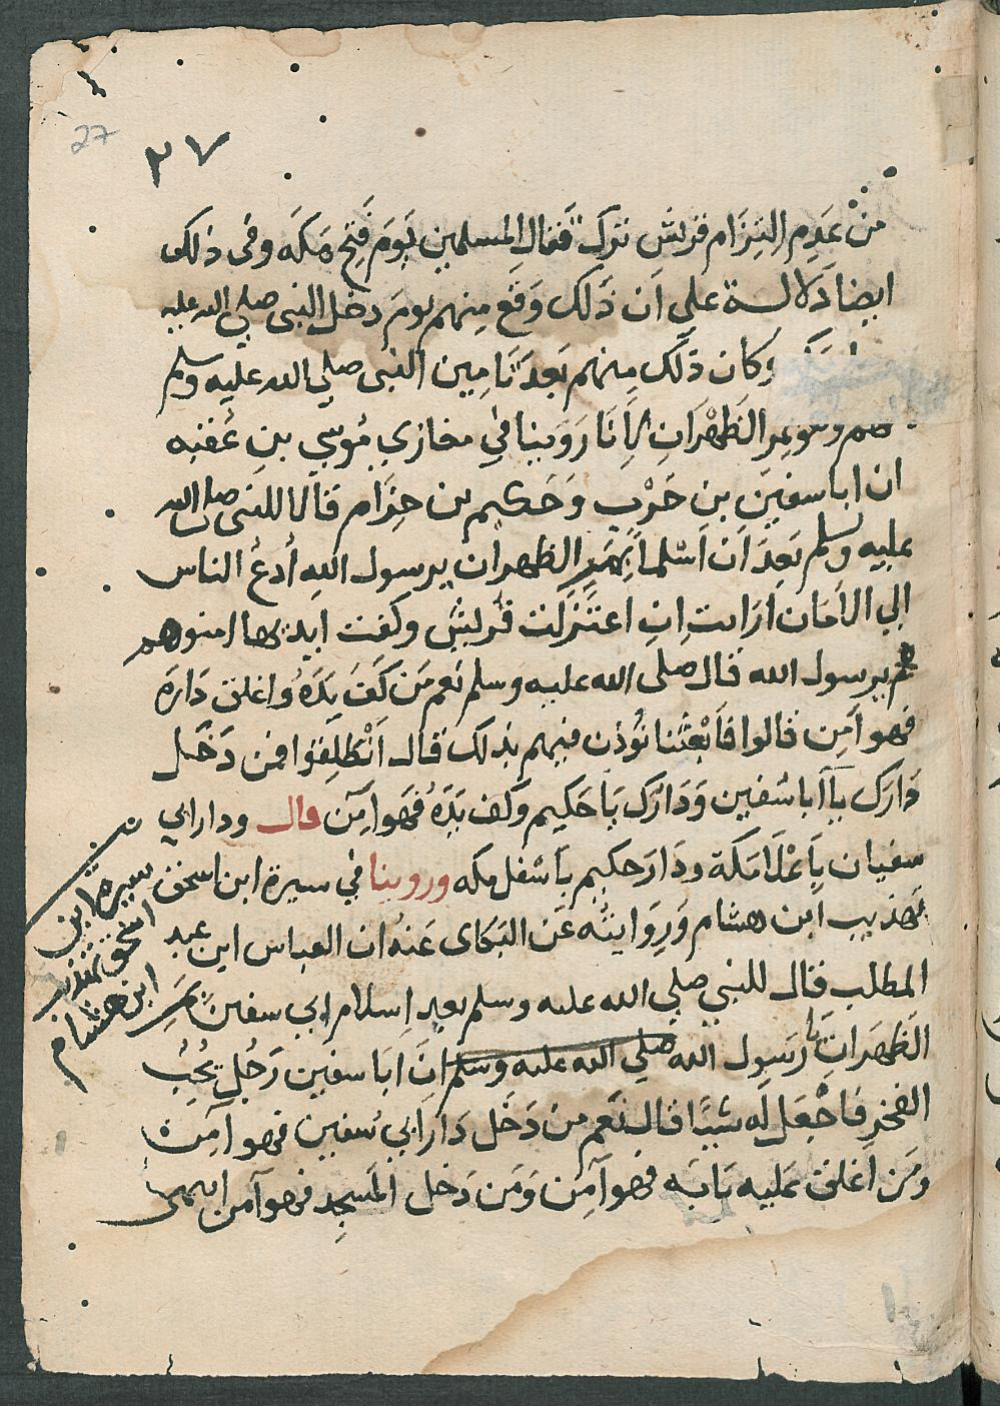 27
٣٧
من عدم التزام قريش ترك قتال المسلمين يوم فتح مكه وفى ذلك
ايضا دلالة على ان ذلك وقع منهم يوم دخل النبى صلى الله عليه
وكان ذلك منهم بعد تامين النبى صلى الله عليه وسلم
الظهران لانا روينا في مغازي موسي بن عقبه
ان ابا سفين بن حرب وحكيم بن حزام قالا للنبى صلى الله
عليه وسلم بعد ان اسلما بمر الظهران يرسول الله ادع الناس
إلي الامان ارايت ان اعتزلت قريش وكفت ايديها امنوهم
يرسول الله قال صلى الله عليه وسلم نعم من كف يده واغلق داره
فهو آمن قالوا فابعثنا نوذن فيهم بذلك قال انطلقوا فمن دخل
دارك يا ابا سفين ودارك يا حكيم وكف يده فهو امن قال ودار ابي
سفيان باعلا مكة ودار حكيم باسفل مكه وروينا في سيرة ابن اسحق
تهذيب ابن هشام وروايته عن البكاى عنه ان العباس ابن عبد
المطلب قال للنبي صلي الله عليه وسلم بعد اسلام ابي سفين بمر
الظهران يا رسول الله صلي الله عليه وسلم ان ابا سفين رجل يحب
الفخر فاجعل له شيئا قال نعم من دخل دار ابي سفين فهو آمن
ومن اغلق عليه بابه فهو آمن ومن دخل المسجد فهو آمن انتهى
سيرة ابن
اسحق تهذيب
ابن هشام